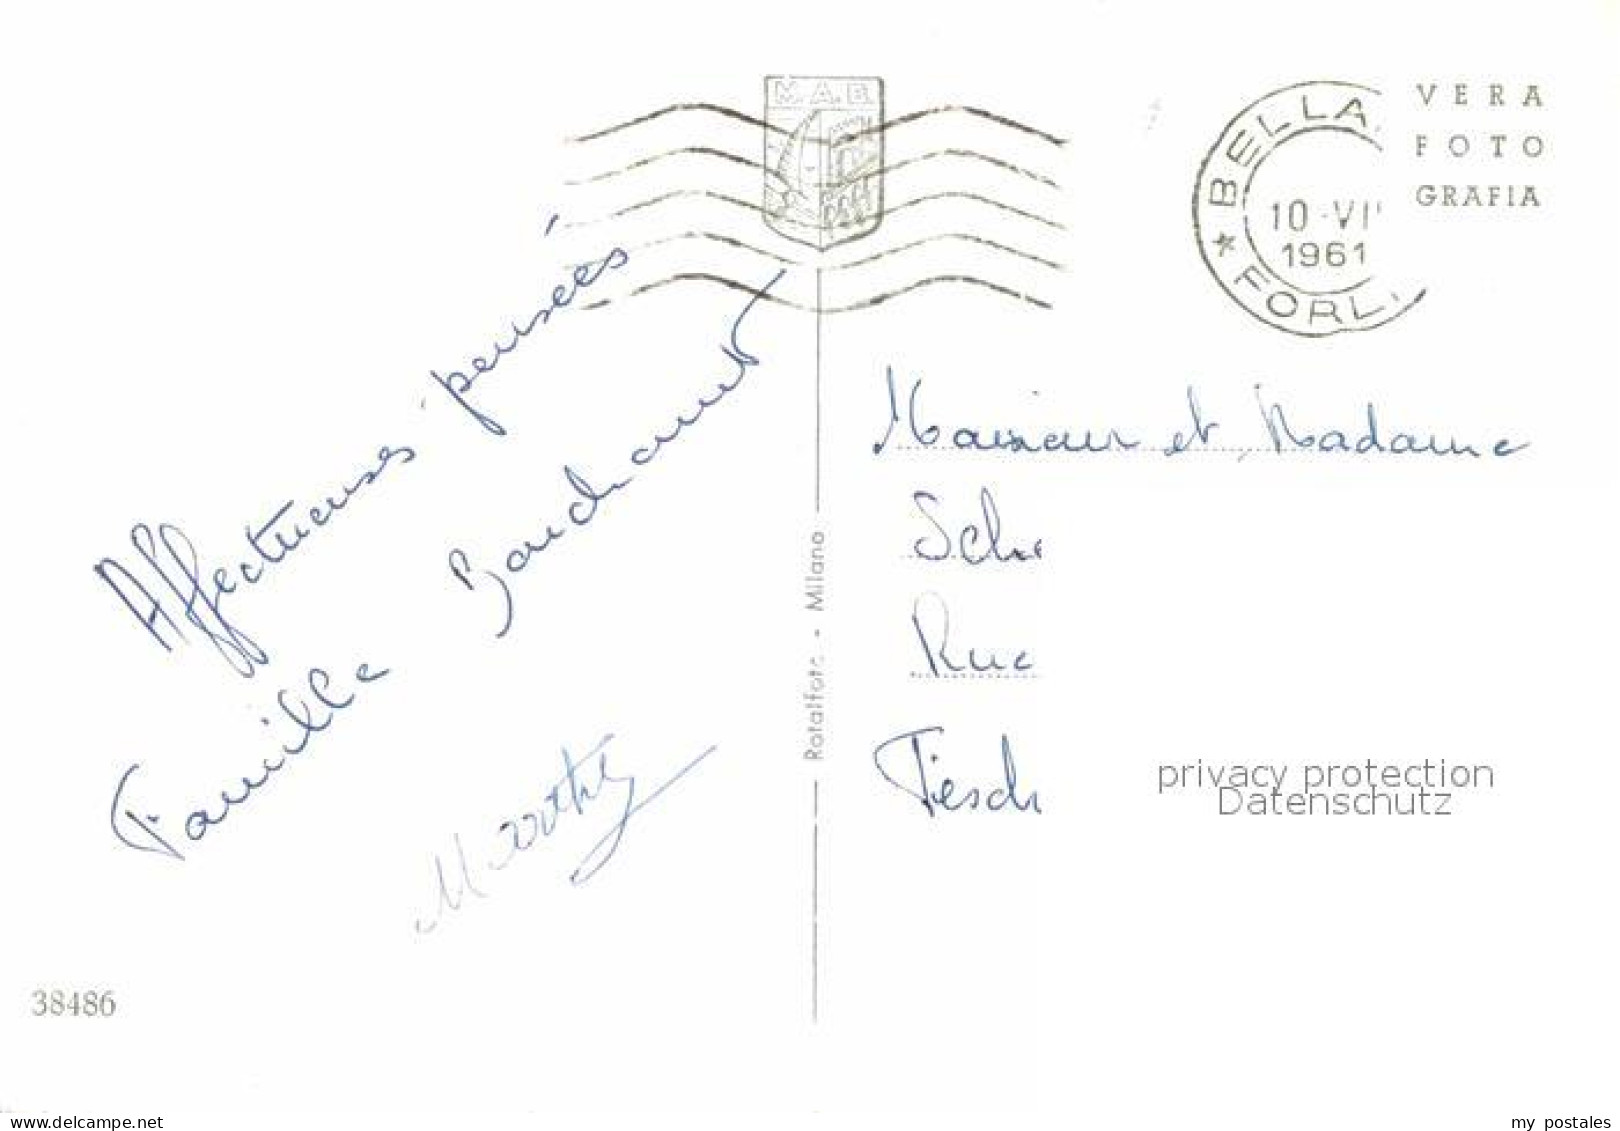 M. A. B.
BELLA
FORL
10 VI
1961
VERA
FOTO
GRAFIA
Affectueuses pensées
Famille
Monsieur et Madame
Sche
Rue
Tesch
Rotalfoto - Milano
privacy protection
Datenschutz
38486
www.delcampe.net
my postales